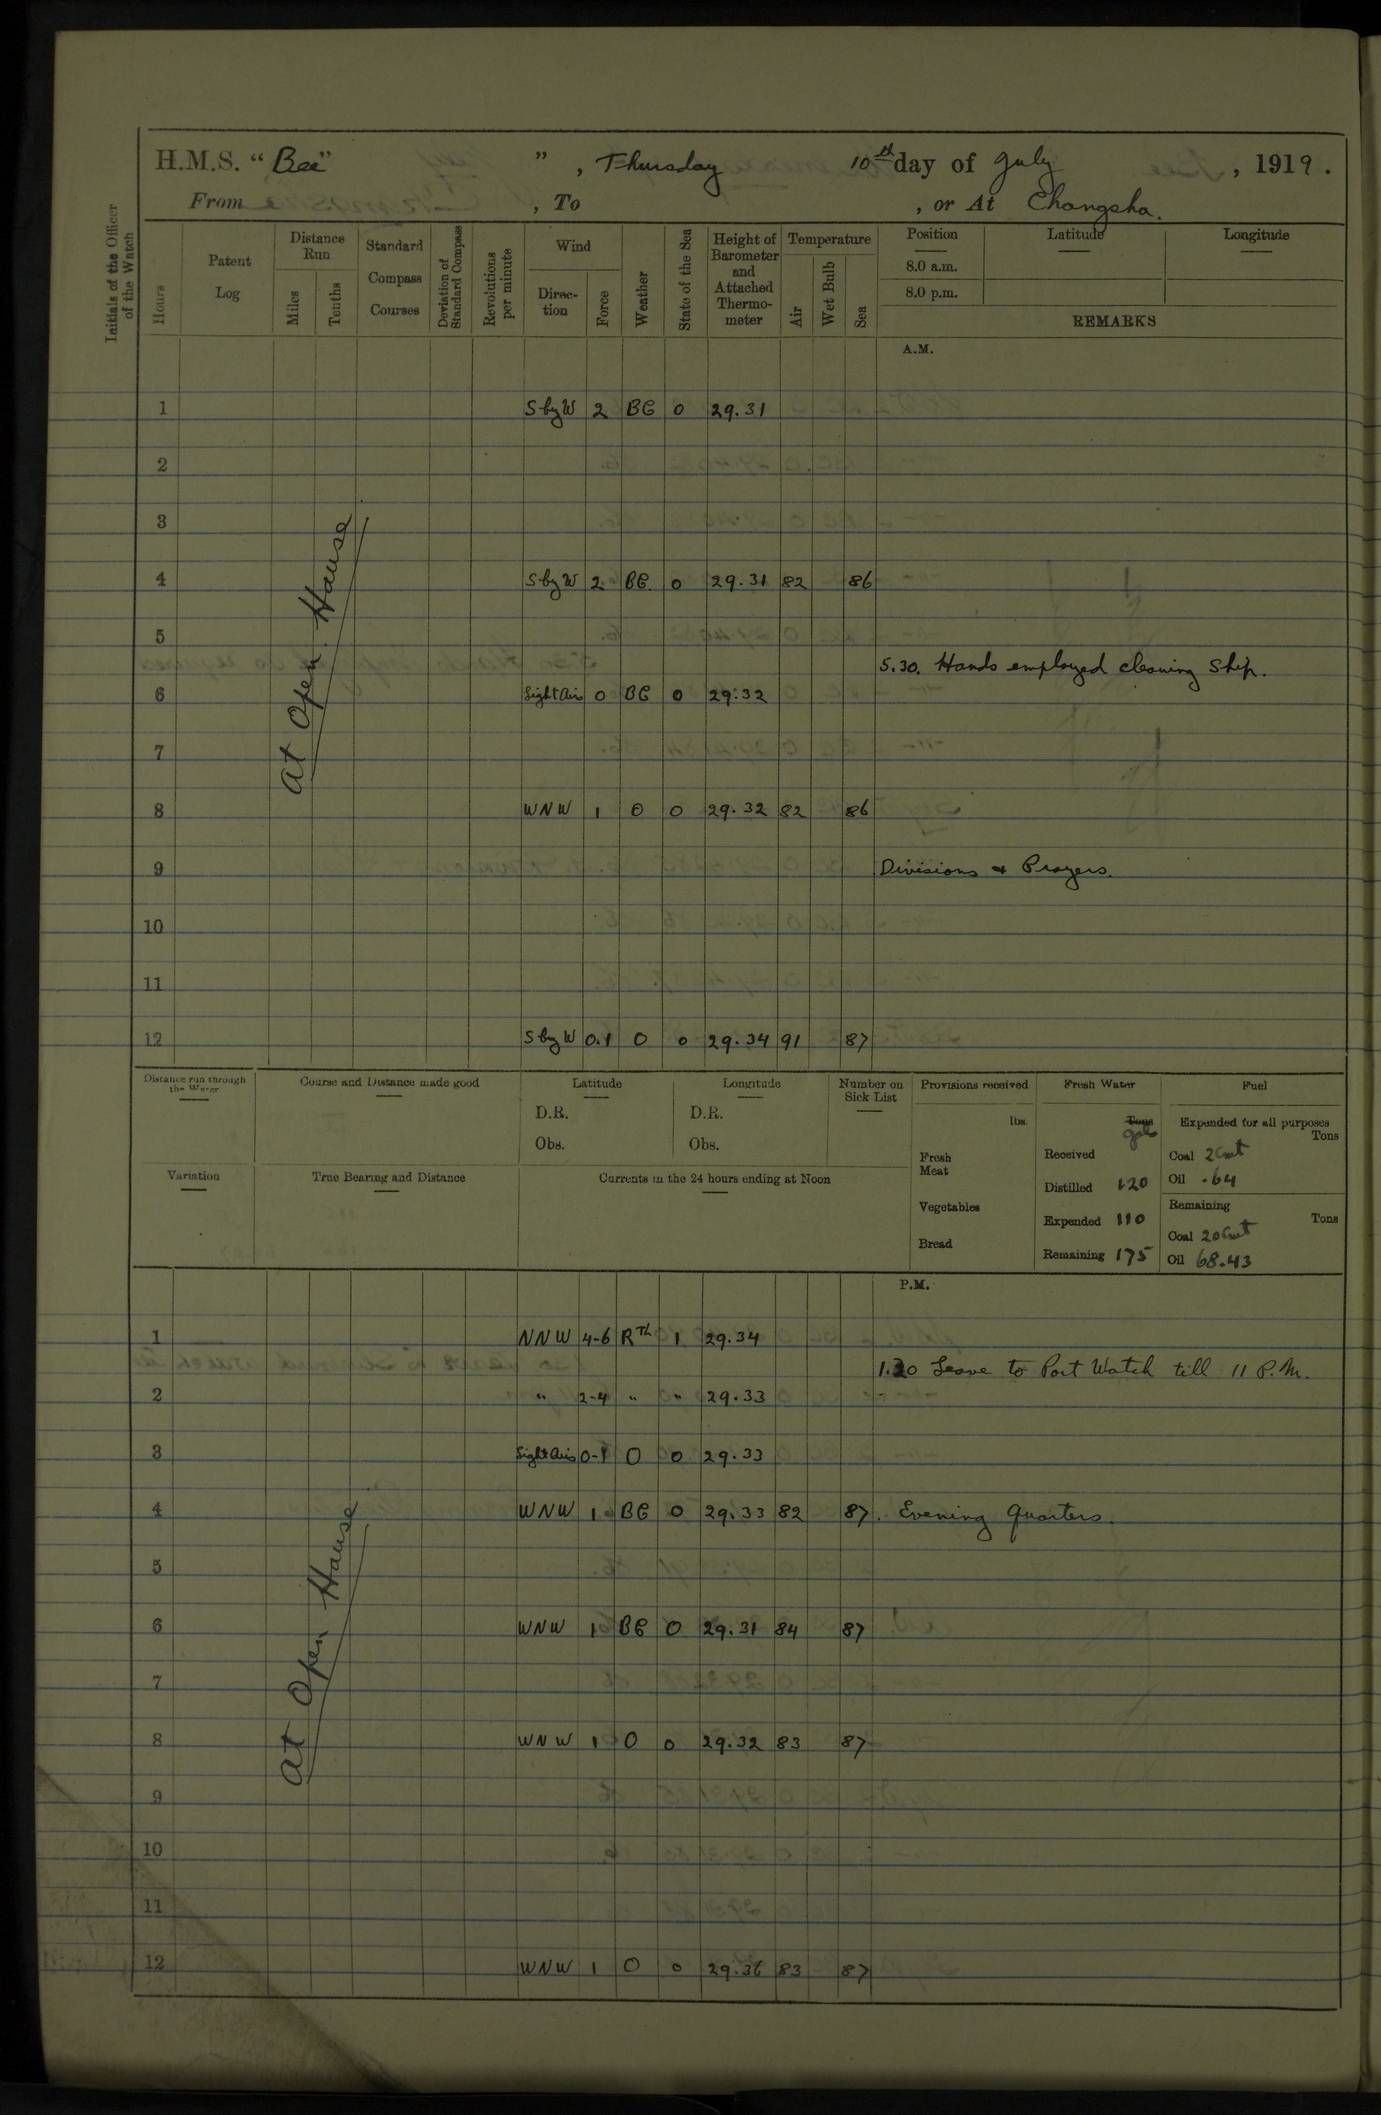 H.M.S. “ Bee” ” , Thursday 10th day of July , 1919 .
From , To , or At Changsha.
Initials of the Officer of the Watch
Hours
Patent Log
Distance Run
Miles
Tenths
Standard Compass Courses
Deviation of Standard Compass
Revolutions per minute
Wind
Direc-tion
Force
Weather
State of the Sea
Height of Barometer and Attached Thermo-meter
Temperature
Air
Wet Bulb
Sea
Position
Latitude
Longitude
8.0 a.m.
8.0 p.m.
REMARKS
A.M.
1 S by W 2 BC 0 29.31
2
3
At Open Hause
4 S by W 2 BC 0 29.31 82 86
5
5.30. Hands employed cleaning Ship.
6 Light Airs 0 BC 0 29.32
7
8 WNW 1 O 0 29.32 82 86
9 Divisions & Prayers.
10
11
12 S by W 0.1 O 0 29.34 91 87
Distance run through the Water
Course and Distance made good
Latitude
D.R.
Obs.
Longitude
D.R.
Obs.
Number on Sick List
Provisions received
lbs.
Fresh Meat
Vegetables
Bread
Fresh Water
Tons
gals
Received
Distilled 120
Expended 110
Remaining 175
Fuel
Expended for all purposes
Tons
Coal 2 Cwt
Oil .64
Remaining
Tons
Coal 20 Cwt
Oil 68.43
Variation
True Bearing and Distance
Currents in the 24 hours ending at Noon
P.M.
1 NNW 4-6 RTh 1 29.34
1.30 Leave to Port Watch till 11 P.M.
2 " 2-4 " " 29.33
3 Light Airs 0-1 O 0 29.33
4 WNW 1 BC 0 29.33 82 87. Evening Quarters.
At Open Hause
5
6 WNW 1 BC 0 29.31 84 87
7
8 WNW 1 O 0 29.32 83 87
9
10
11
12 WNW 1 O 0 29.36 83 87